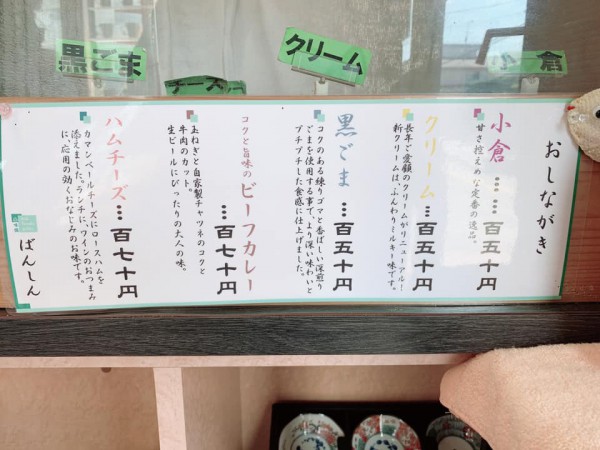 黒ごま
チーズ
クリーム
小倉
おしながき
小倉……百五十円
甘さ控えめな定番の逸品。
クリーム…百五十円
長年ご愛顧のクリームがリニューアル!
新クリームは、ふんわりミルキー味です。
黒ごま…百五十円
コクのある練りゴマと香ばしい深煎り
ごまを使用する事で、より深い味わいと
プチプチした食感に仕上げました。
コクと旨味のビーフカレー
…百七十円
玉ねぎと自家製チャツネのコクと
牛肉のカット。
生ビールにぴったりの大人の味。
ハムチーズ…百七十円
カマンベールチーズにロースハムを
添えました。ランチに、ワインのおつまみ
に、応用の効くおなじみのお味です。
ばんしん